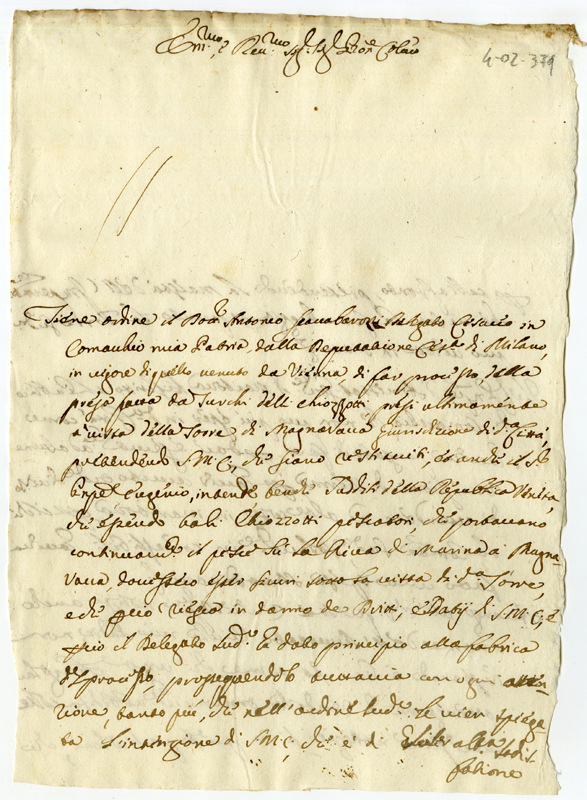 Em.mo, e Rev.mo Sig.r Sig.r Pron.e Col.mo
4-02-379
Tiene ordine il Dott.r Antonio Cavallazzi Delegato Cesareo in
Comacchio mia Patria, dalla Deputazione Ces.a di Milano,
in vigore di quello venuto da Vienna, di far processo, della
presa fatta da Turchi delli Chiozzotti presi ultimamente
a vista della Torre di Magnavacca giurisdizione di d.a Città,
pretendendo S.M.C., che siano restituiti, et anche il S.r
Eugenio, intende benche Sudditi della Republica Veneta,
che essendo tali Chiozzotti pescatori, che portavano
continuam.te il pesce su la Riva di Marina a Magna-
vacca, dovessero esser sicuri sotto la vista di d.a Torre,
e che perciò in danno de Dritti, e Dazij di S.M.C., e
perciò il Delegato sud.o hà dato principio alla fabrica
del processo, proseguendolo tuttavia con ogni atten-
zione, tanto più, che nell'ordine sud.o le vien spiega-
ta l'intenzione di S.M.C., che è di alla sodis-
fazione